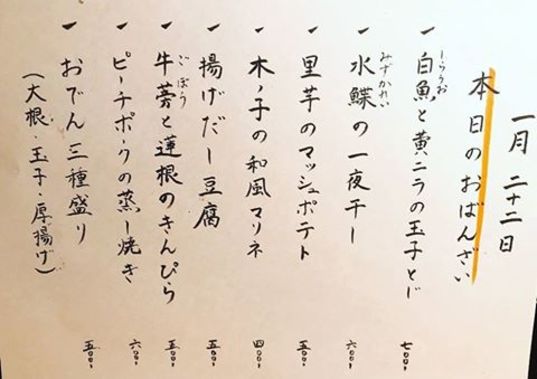 一月 二十二日
本日のおばんざい
白魚と黄ニラの玉子とじ 七〇〇、
しらうお
水鰈の一夜干し 六〇〇、
みずかれい
里芋のマッシュポテト 五〇〇、
木ノ子の和風マリネ 四〇〇、
揚げだし豆腐 五〇〇、
牛蒡と蓮根のきんぴら 五〇〇、
ごぼう
ピーチポークの蒸し焼き 六〇〇、
おでん 三種盛り 五〇〇、
(大根・玉子・厚揚げ)